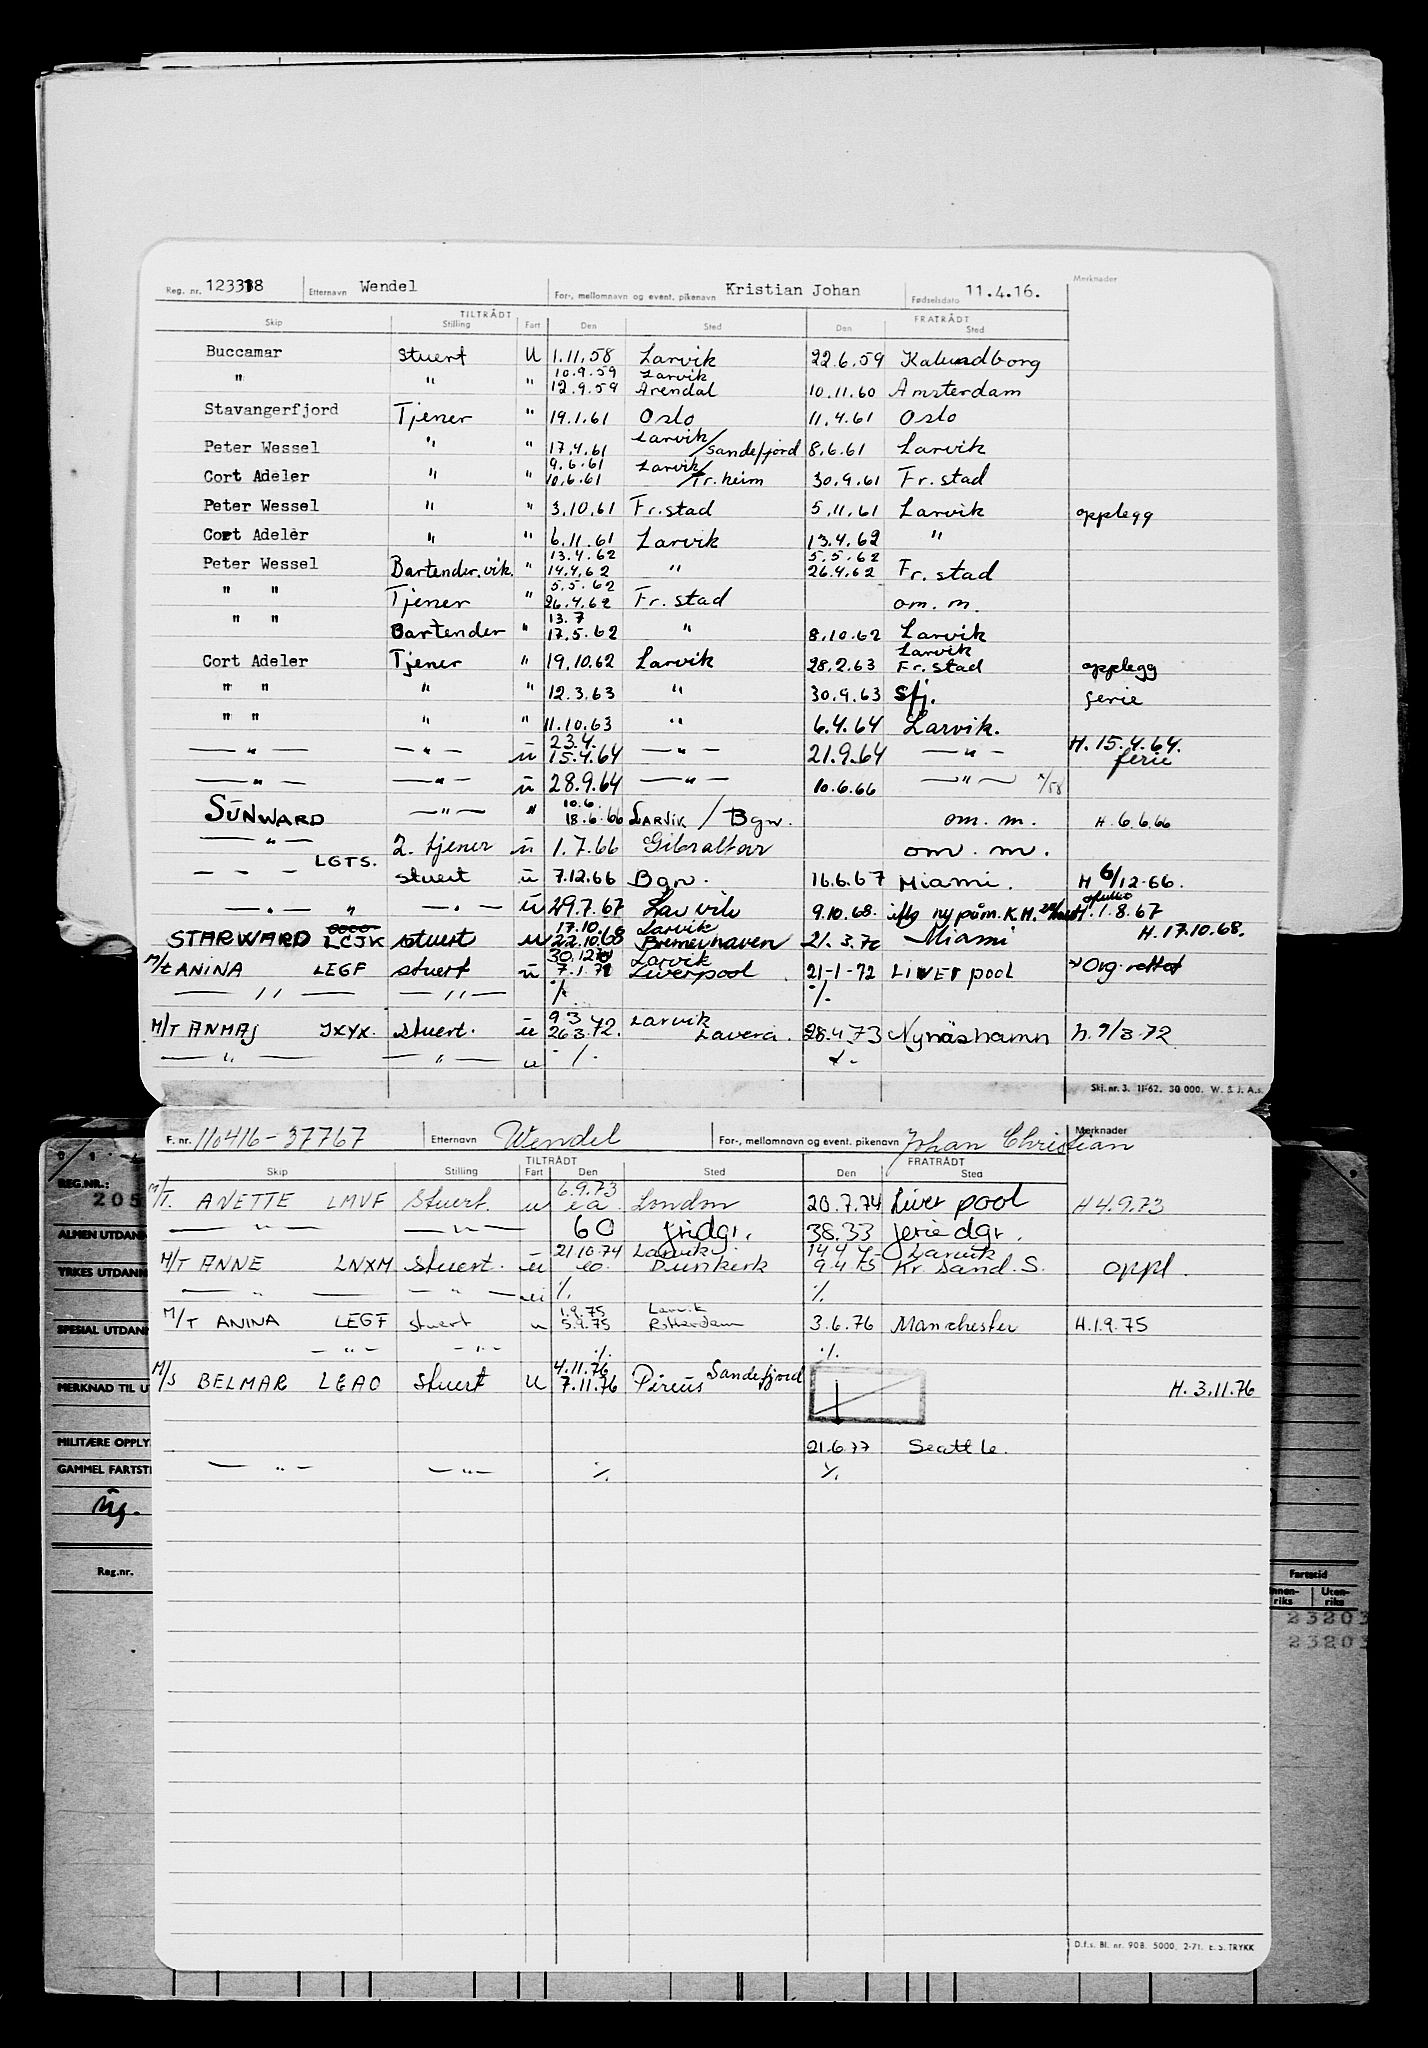 Reg. nr. 123318 Etternavn Wendel For-, mellomnavn og event. pikenavn Kristian Johan Fødselsdato 11.4.16. Merknader
TILTRÅDT FRATRÅDT
Skip Stilling Fart Den Sted Den Sted
Buccamar stuert U 1.11.58 Larvik 22.6.59 Kalundborg
10.9.59 Larvik
" " " 12.9.59 Arendal 10.11.60 Amsterdam
Stavangerfjord Tjener " 19.1.61 Oslo 11.4.61 Oslo
Peter Wessel " " 17.4.61 Larvik/Sandefjord 8.6.61 Larvik
9.6.61
Cort Adeler " " 10.6.61 Larvik/Tr.heim 30.9.61 Fr.stad
Peter Wessel " " 3.10.61 Fr.stad 5.11.61 Larvik opplegg
Cort Adeler " " 6.11.61 Larvik 13.4.62 "
13.4.62 5.5.62
Peter Wessel Bartender.vik. " 14.4.62 " 26.4.62 Fr.stad
5.5.62
" " Tjener " 26.4.62 Fr.stad om.m.
13.7
" " Bartender " 17.5.62 " 8.10.62 Larvik
Larvik
Cort Adeler Tjener " 19.10.62 Larvik 28.2.63 Fr.stad opplegg
" " " " 12.3.63 " 30.9.63 Sfj. ferie
" " " " 11.10.63 " 6.4.64 Larvik.
23.4. H.15.4.64.
— " — — " — u 15.4.64 — " — 21.9.64 — " — ferie
— " — — " — u 28.9.64 — " — 10.6.66 — " — /58
10.6.
SUNWARD — " — " 18.6.66 Larvik / Bgn. om. m. H. 6.6.66
— " — 2. tjener u 1.7.66 Gibraltar om. m.
LGTS.
— — — stuert u 7.12.66 Bgn. 16.6.67 Miami. H 6/12-66.
— " — " — " — u 29.7.67 Larvik 9.10.68. iflg ny påm. K.H. H.1.8.67
17.10.68 Larvik H.17.10.68.
STARWARD LCJK stuert u 22.10.68 Bremerhaven 21.3.70 Miami
30.12.70 Larvik
M/t ANINA LEGF stuert u 7.1.71 Liverpool 21-1-72 LIVERpool Org. rettet
— " — — " — ·/. ·/.
9.3 Larvik
M/T ANMAJ JXYX. Stuert. u 26.3.72. Lavera. 28.4.73 Nynäshamn h. 7/3.72
— " — — " — u ·/. ·/.
Skj. nr. 3. 11-62. 30 000. W. & J. A.s.
F. nr. 110416-37767 Etternavn Wendel For-, mellomnavn og event. pikenavn Johan Christian Merknader
TILTRÅDT FRATRÅDT
Skip Stilling Fart Den Sted Den Sted
6.9.73
M/T. ANETTE LMVF Stuert. u ea London 20.7.74 Liverpool H 4.9.73
— " — — " — 60 fridgr. 38.33 feriedgr.
21.10.74 Larvik. Larvik
M/T ANNE LNXM Stuert. u eo. Dunkerk 9.4.75 Kr.sand.S. oppl.
— " — — " — u ·/. ·/.
1.9.75 Larvik
M/T ANINA LEGF stuert u 5.9.75 Rotterdam 3.6.76 Manchester H.1.9.75
— " — — " — ·/. ·/.
4.11.76 Sandefjord
M/S BELMAR LEAO Stuert U 7.11.76 Pireus H. 3.11.76
21.6.77 Seattle.
— " — — " — ·/. ·/.
D.f.s. Bl. nr. 908. 5000. 2-71. E. S. TRYKK
REG.NR.:
205
ALMEN UTDAN
YRKES UTDANN
SPESIAL UTDAN
MERKNAD TIL U
MILITÆRE OPPLY
GAMMEL FARTST
Reg.nr.
Fartstid
Innen-riks Uten-riks
23203
23203